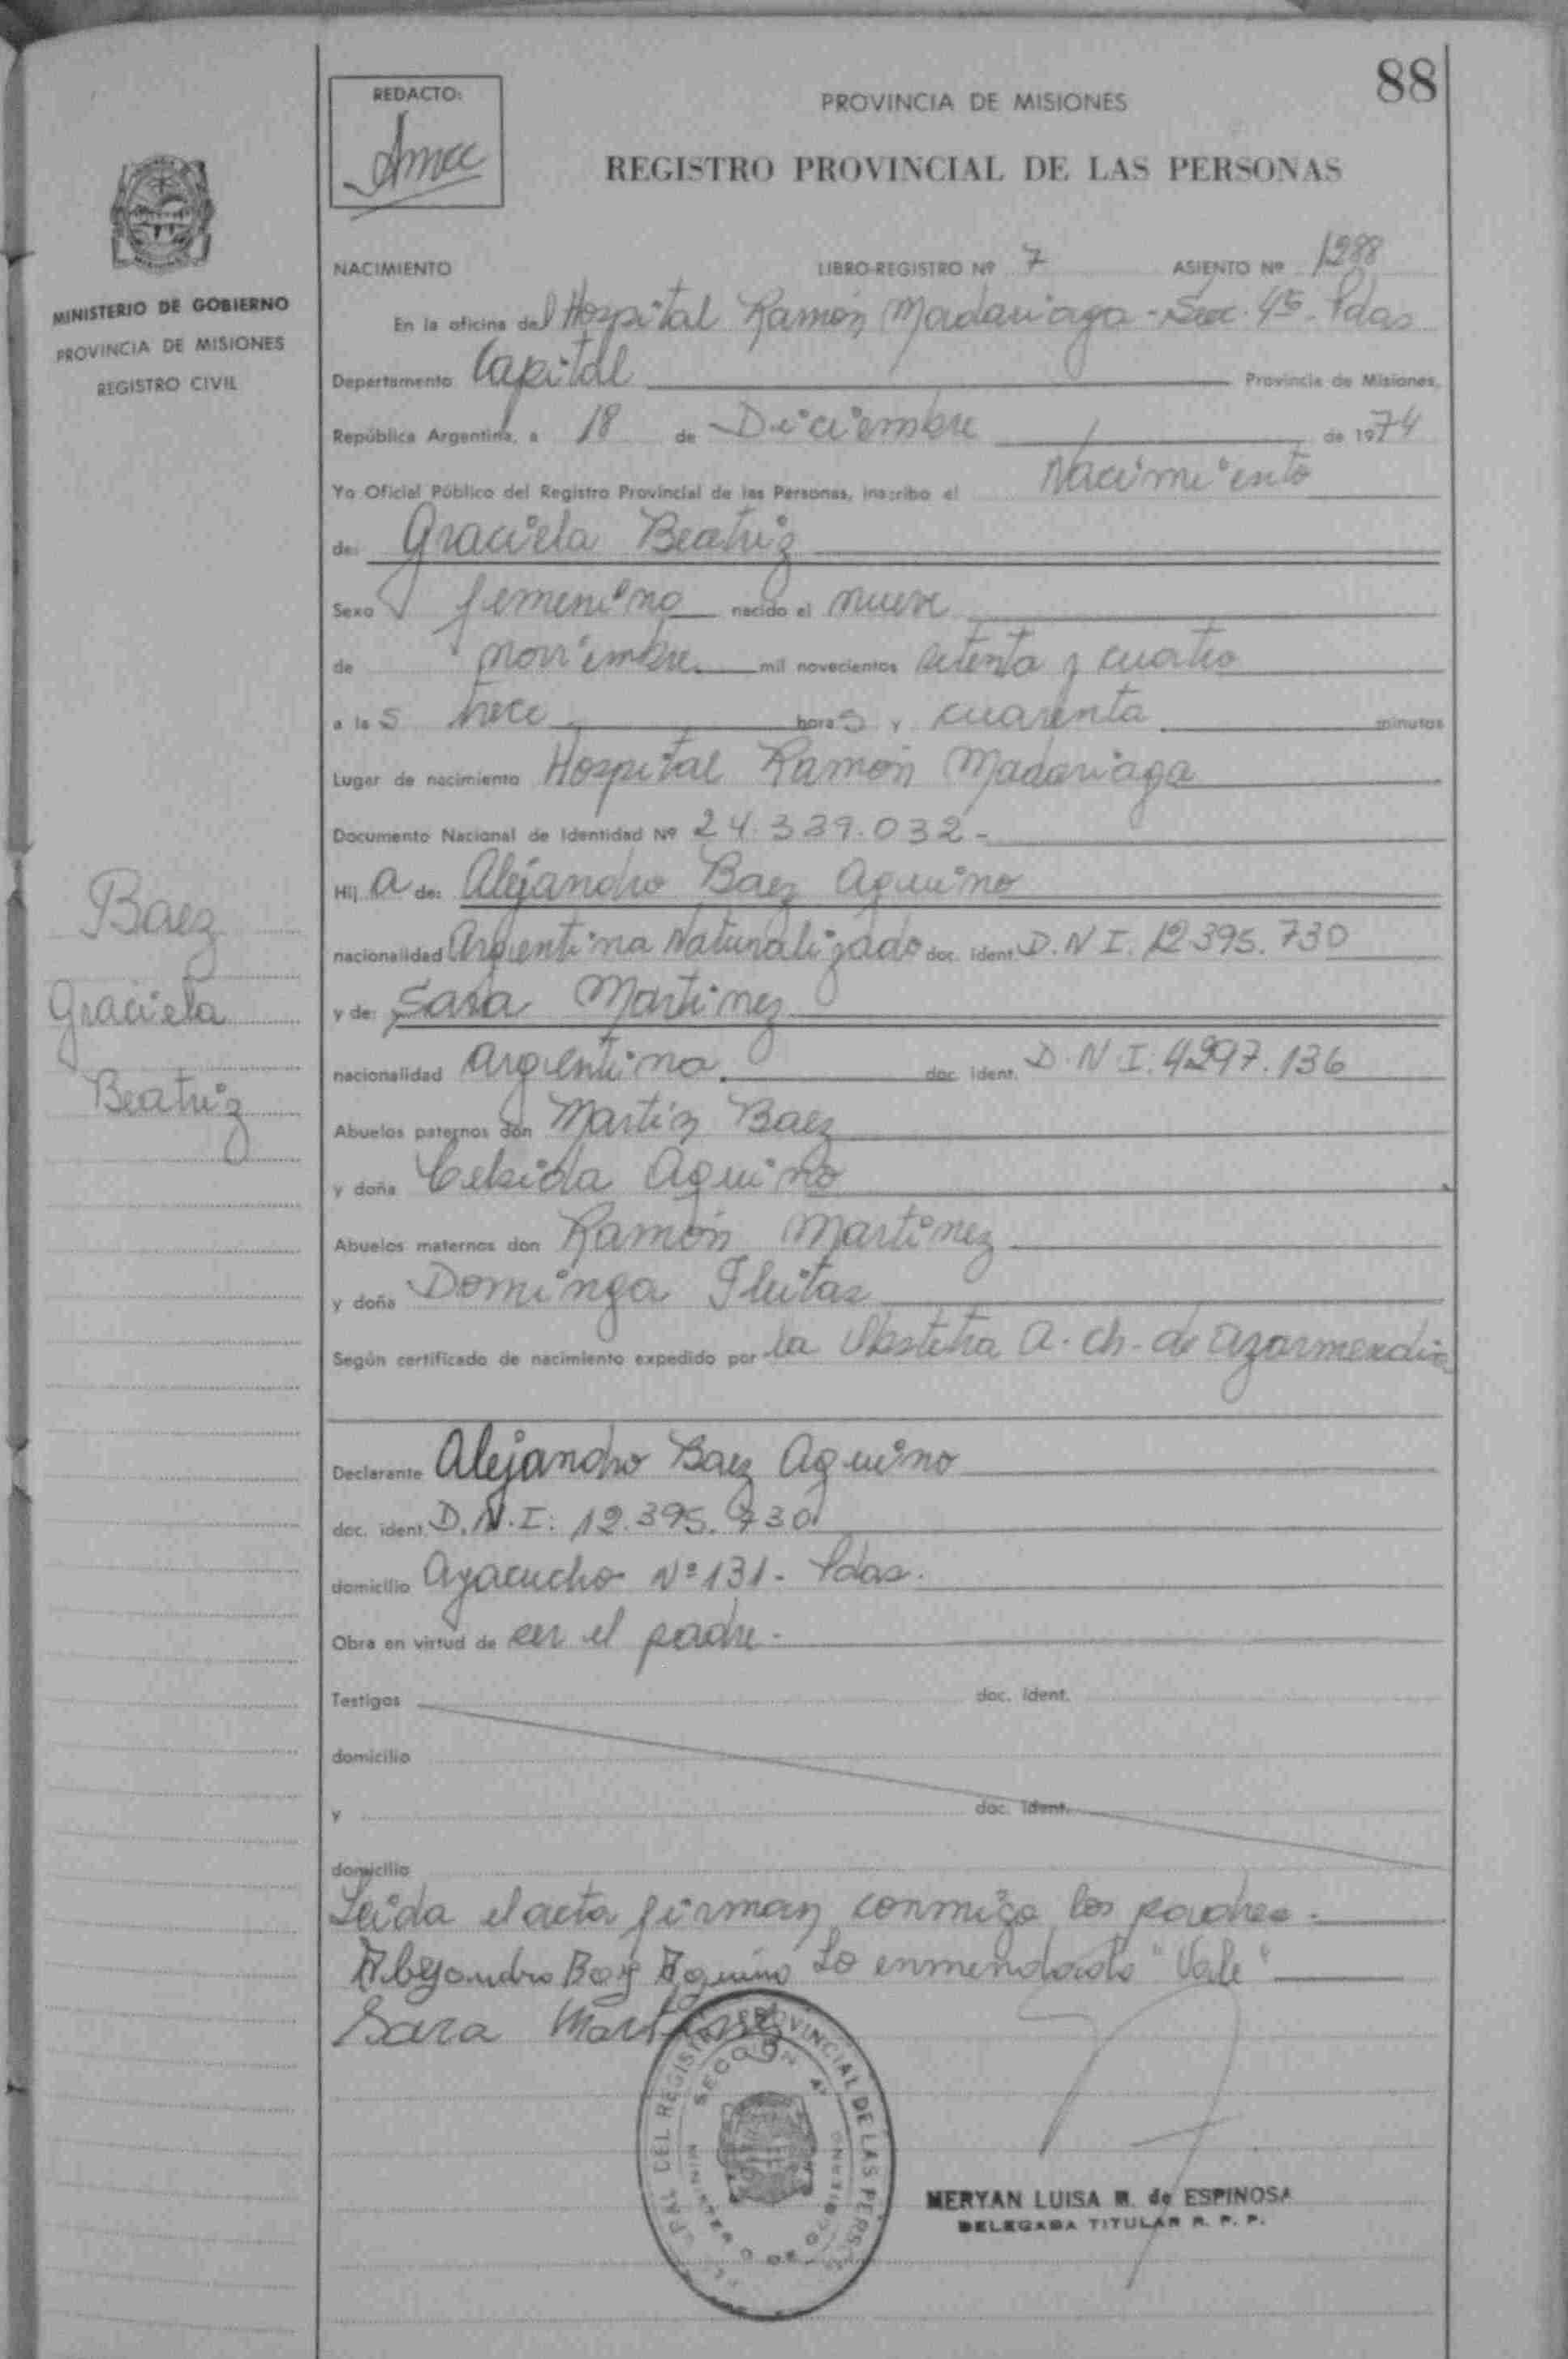 88
REDACTO:
PROVINCIA DE MISIONES
REGISTRO PROVINCIAL DE LAS PERSONAS
MINISTERIO DE GOBIERNO
PROVINCIA DE MISIONES
REGISTRO CIVIL
NACIMIENTO LIBRO-REGISTRO Nº 7 ASIENTO Nº 1288
En la oficina del Hospital Ramón Madariaga - Sec. 4ª - Pdas
Departamento Capital Provincia de Misiones,
República Argentina, a 18 de Diciembre de 1974
Yo Oficial Público del Registro Provincial de las Personas, inscribo el Nacimiento
de: Graciela Beatriz
Sexo femenino nacido el nueve
de noviembre mil novecientos setenta y cuatro
a las trece horas y cuarenta minutos
Lugar de nacimiento Hospital Ramón Madariaga
Documento Nacional de Identidad Nº 24.339.032-
Hija de: Alejandro Baez Aquino
nacionalidad Argentina Naturalizado doc. ident D.N I. 12 395.730
y de: Sara Martinez
nacionalidad argentina doc. ident. D.N I. 4297.136
Abuelos paternos don Martin Baez
y doña Aquino
Abuelos maternos don Ramón Martinez
y doña Dominga Fleitas
Según certificado de nacimiento expedido por la Obstetra A. Ch. de Azarmendia
Baez
Graciela
Beatriz
Declarante Alejandro Baez Aquino
doc. ident. D.N.I: 12.395.730
domicilio Ayacucho Nº 131- Pdas.
Obra en virtud de ser el padre-
Testigos doc. ident.
domicilio
y doc. ident.
domicilio
Leida el acta firman conmigo los padres.
Alejandro Baez Aquino Lo enmendado "Vale"
Sara Martinez
DEL REGISTRO PROVINCIAL DE LAS PERS
SECCION 4ª
MERYAN LUISA M. de ESPINOSA
DELEGADA TITULAR R. P. P.